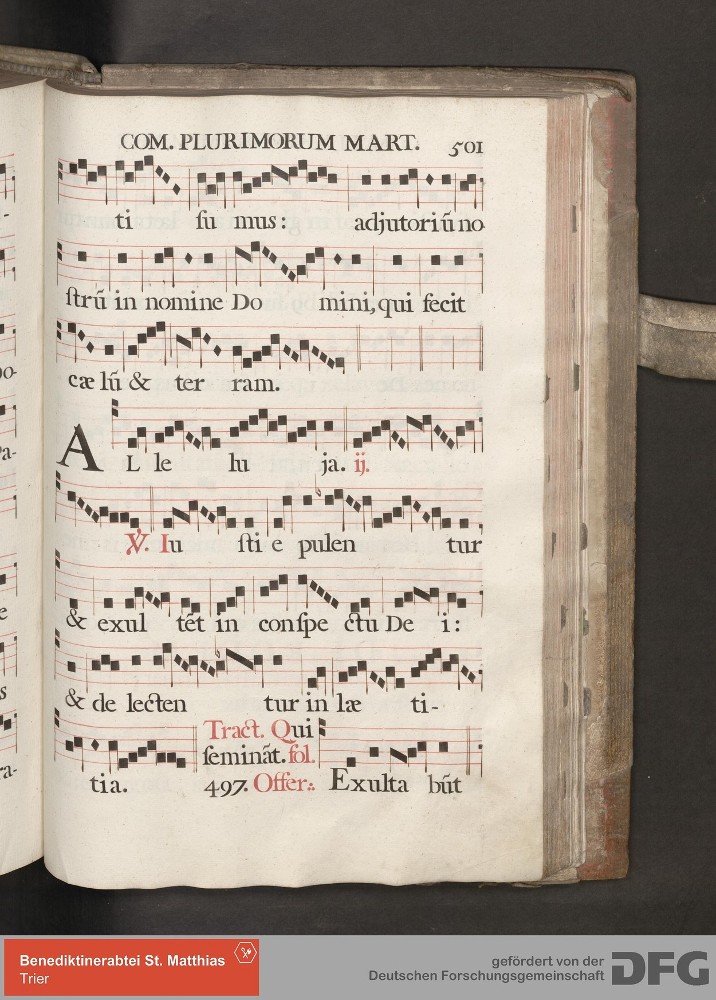 COM. PLURIMORUM MART. 501
ti su mus: adjutoriū no
ſtrū in nomine Do mini, qui fecit
cæ lū & ter ram.
AL le lu ja. ij.
℣. Iu ſti e pulen tur
& exul tēt in conſpe ctu De i:
& de lecten tur in læ ti-
Tract. Qui
ſeminãt. fol.
tia. 497. Offer:. Exulta būt
Benediktinerabtei St. Matthias
Trier
gefördert von der
Deutschen Forschungsgemeinschaft DFG